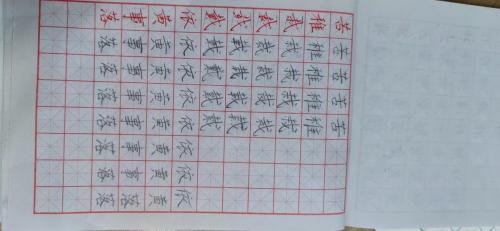 苦苦苦苦苦
稚稚稚稚稚
栽栽栽栽栽
裁裁裁裁裁
载载载载载
戴戴戴戴戴
依依依依依依依依
黄黄黄黄黄黄黄黄
事事事事事事事落
落落落落落落落落